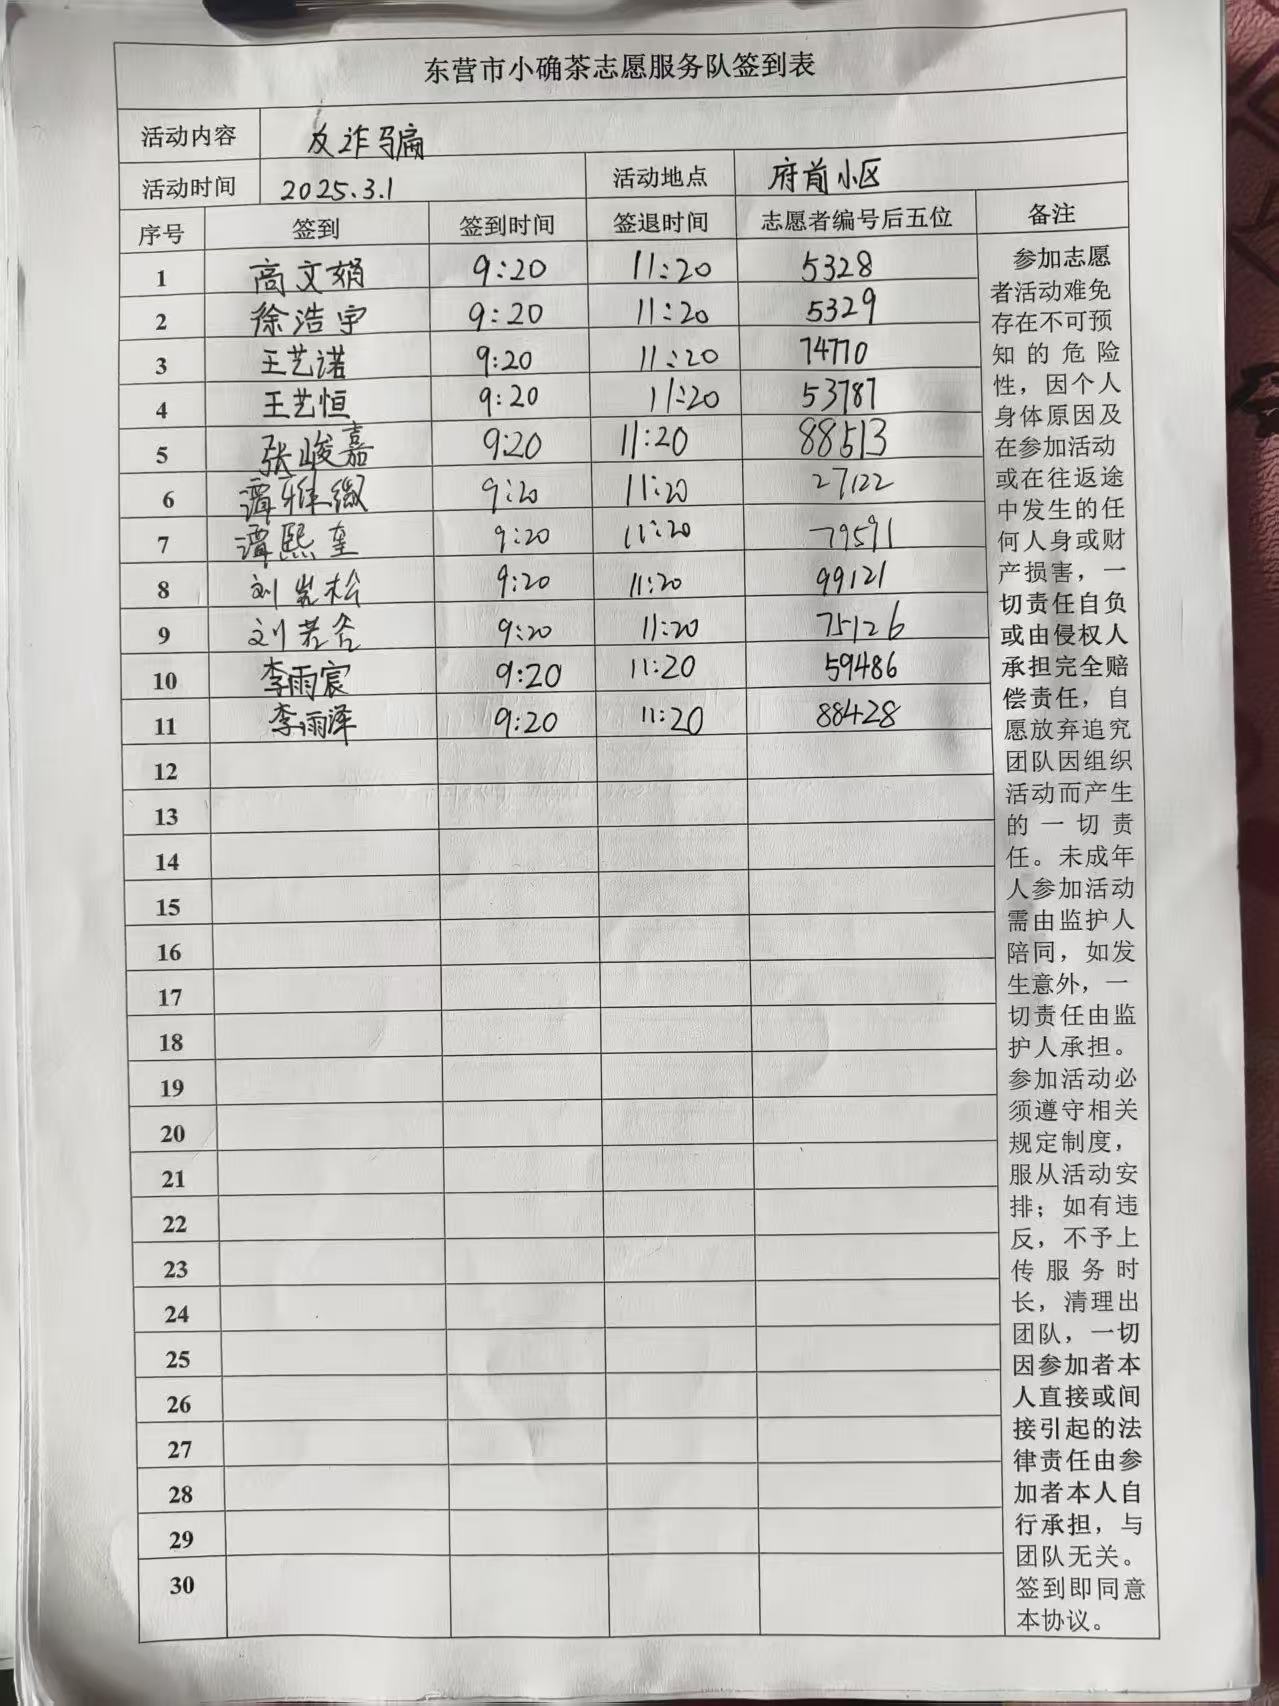 东营市小确茶志愿服务队签到表
活动内容 反诈骗
活动时间 2025.3.1 活动地点 府前小区
序号 签到 签到时间 签退时间 志愿者编号后五位 备注
1 高文娟 9:20 11:20 5328
2 徐浩宇 9:20 11:20 5329
3 王艺诺 9:20 11:20 74770
4 王艺恒 9:20 11:20 53787
5 张峻嘉 9:20 11:20 88513
6 谭雅 9:20 11:20 27122
7 谭熙奎 9:20 11:20 79591
8 刘 松 9:20 11:20 99121
9 刘若 9:20 11:20 75126
10 李雨宸 9:20 11:20 59486
11 李雨泽 9:20 11:20 88428
12
13
14
15
16
17
18
19
20
21
22
23
24
25
26
27
28
29
30
参加志愿
者活动难免
存在不可预
知的危险
性，因个人
身体原因及
在参加活动
或在往返途
中发生的任
何人身或财
产损害，一
切责任自负
或由侵权人
承担完全赔
偿责任，自
愿放弃追究
团队因组织
活动而产生
的一切责
任。未成年
人参加活动
需由监护人
陪同，如发
生意外，一
切责任由监
护人承担。
参加活动必
须遵守相关
规定制度，
服从活动安
排；如有违
反，不予上
传服务时
长，清理出
团队，一切
因参加者本
人直接或间
接引起的法
律责任由参
加者本人自
行承担，与
团队无关。
签到即同意
本协议。